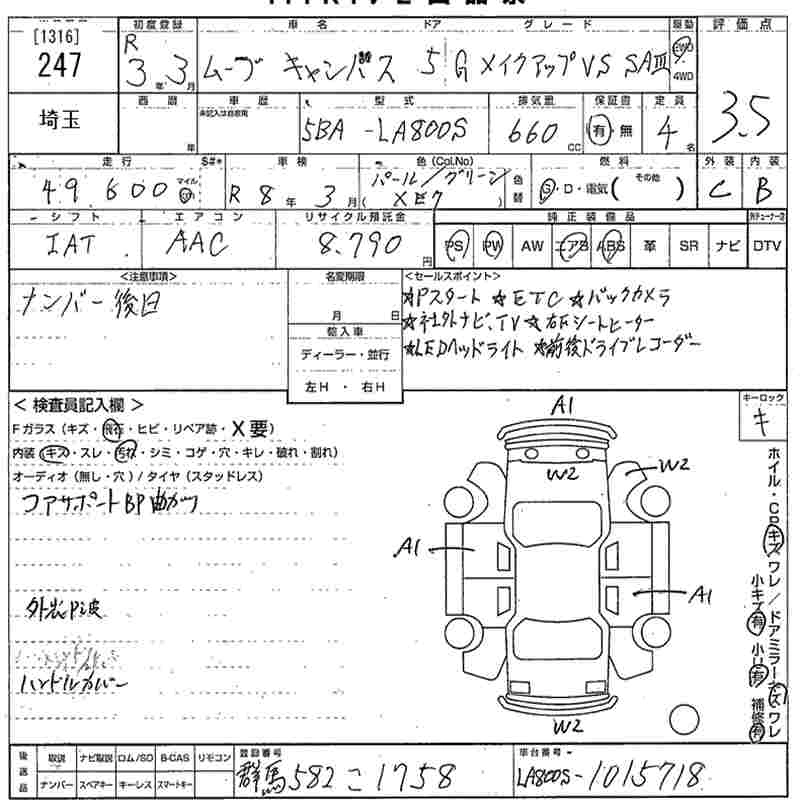 [1316]
247
初度登録 車名 ドア グレード 駆動 評価点
R 3年 3月 ムーブ キャンバス 5 G メイクアップVS SAⅢ 2WD 4WD
3.5
埼玉
西暦 車歴 型式 排気量 保証書 定員
年 未記入は自家用 5BA-LA800S 660 CC 有・無 4名
走行 S#* 車検 色(Col.No) 燃料 外装 内装
49,600 マイル km R8年 3月 パール/グリーン (XE7) 色替 G・D・電気(その他) C B
シフト エアコン リサイクル預託金 純正装備品
IAT AAC 8,790円 PS PW AW エアB ABS 革 SR ナビ DTV
<注意事項> 名変期限 <セールスポイント>
ナンバー後日
月 日
輸入車
ディーラー・並行
左H・右H
★Pスタート ★ETC ★バックカメラ
★社外ナビ、TV ★右Fシートヒーター
★LEDヘッドライト ★前後ドライブレコーダー
<検査員記入欄> キーロック
キ
Fガラス(キズ・飛石・ヒビ・リペア跡・X要)
内装(キズ・スレ・汚れ・シミ・コゲ・穴・キレ・破れ・割れ)
オーディオ(無し・穴)/タイヤ(スタッドレス)
コアサポートBP曲ガリ
ハンドルカバー
A1
W2
W2
A1
A1
W2
小キズ有 小凹有 補修有
後送品 取説 ナビ取説 ロム/SD B-CAS リモコン 登録番号 車台番号
ナンバー スペアキー キーレス スマートキー 群馬 582 こ 1758 LA800S-1015718